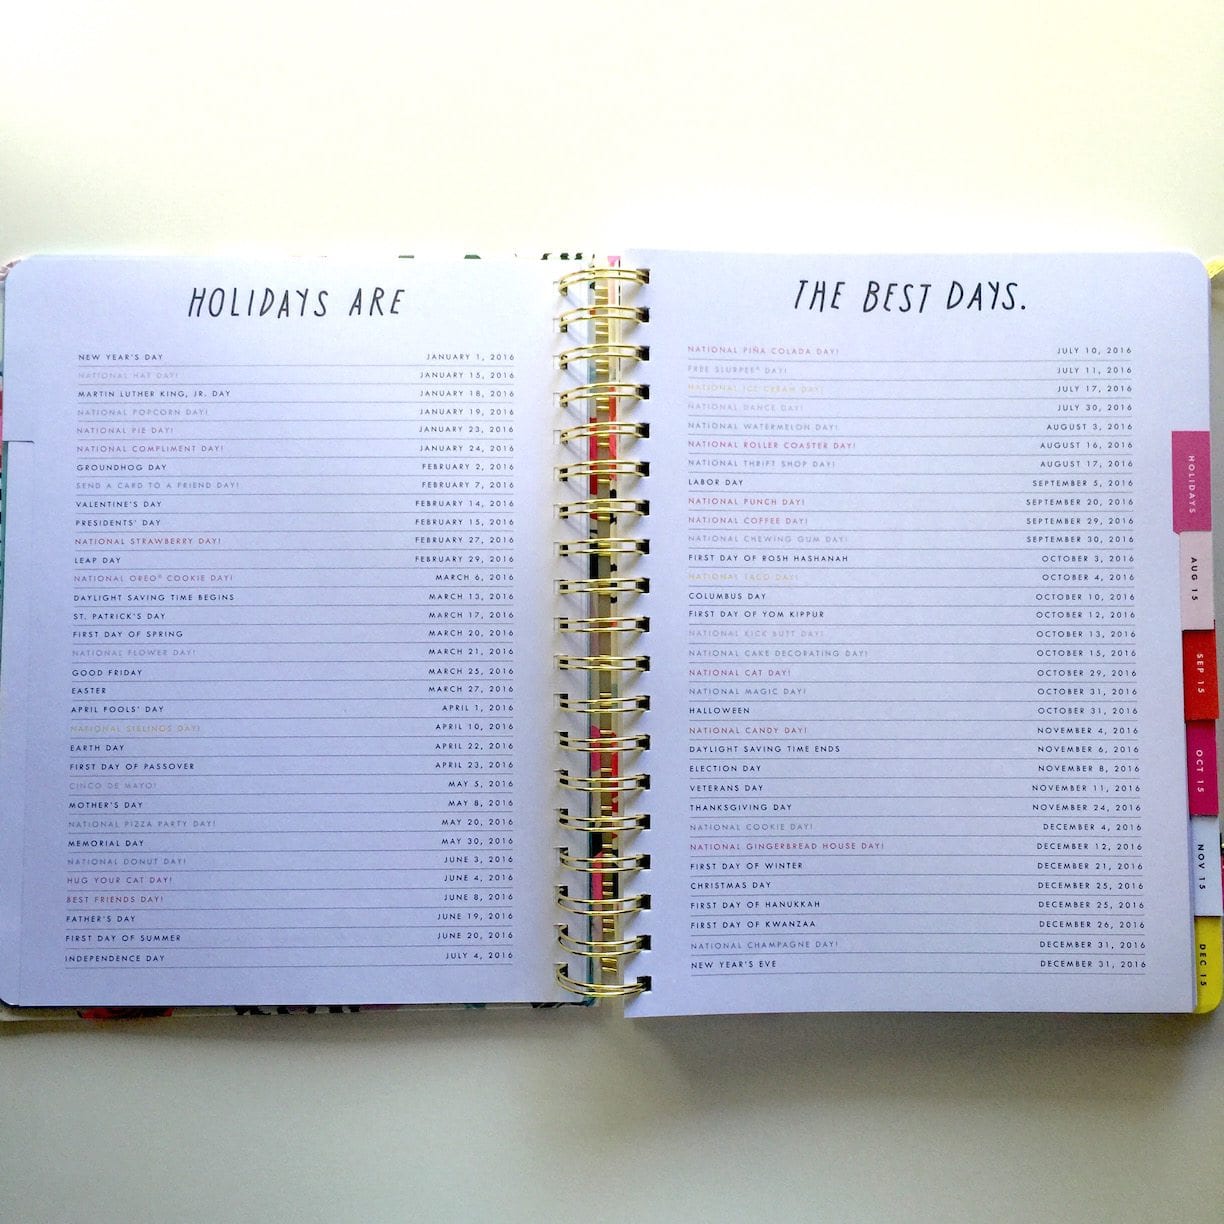 HOLIDAYS ARE
NEW YEAR'S DAY JANUARY 1, 2016
NATIONAL HAT DAY! JANUARY 15, 2016
MARTIN LUTHER KING, JR. DAY JANUARY 18, 2016
NATIONAL POPCORN DAY! JANUARY 19, 2016
NATIONAL PIE DAY! JANUARY 23, 2016
NATIONAL COMPLIMENT DAY! JANUARY 24, 2016
GROUNDHOG DAY FEBRUARY 2, 2016
SEND A CARD TO A FRIEND DAY! FEBRUARY 7, 2016
VALENTINE'S DAY FEBRUARY 14, 2016
PRESIDENTS' DAY FEBRUARY 15, 2016
NATIONAL STRAWBERRY DAY! FEBRUARY 27, 2016
LEAP DAY FEBRUARY 29, 2016
NATIONAL OREO® COOKIE DAY! MARCH 6, 2016
DAYLIGHT SAVING TIME BEGINS MARCH 13, 2016
ST. PATRICK'S DAY MARCH 17, 2016
FIRST DAY OF SPRING MARCH 20, 2016
NATIONAL FLOWER DAY! MARCH 21, 2016
GOOD FRIDAY MARCH 25, 2016
EASTER MARCH 27, 2016
APRIL FOOLS' DAY APRIL 1, 2016
NATIONAL SIBLINGS DAY! APRIL 10, 2016
EARTH DAY APRIL 22, 2016
FIRST DAY OF PASSOVER APRIL 23, 2016
CINCO DE MAYO! MAY 5, 2016
MOTHER'S DAY MAY 8, 2016
NATIONAL PIZZA PARTY DAY! MAY 20, 2016
MEMORIAL DAY MAY 30, 2016
NATIONAL DONUT DAY! JUNE 3, 2016
HUG YOUR CAT DAY! JUNE 4, 2016
BEST FRIENDS DAY! JUNE 8, 2016
FATHER'S DAY JUNE 19, 2016
FIRST DAY OF SUMMER JUNE 20, 2016
INDEPENDENCE DAY JULY 4, 2016
THE BEST DAYS.
NATIONAL PIÑA COLADA DAY! JULY 10, 2016
FREE SLURPEE® DAY! JULY 11, 2016
NATIONAL ICE CREAM DAY! JULY 17, 2016
NATIONAL DANCE DAY! JULY 30, 2016
NATIONAL WATERMELON DAY! AUGUST 3, 2016
NATIONAL ROLLER COASTER DAY! AUGUST 16, 2016
NATIONAL THRIFT SHOP DAY! AUGUST 17, 2016
LABOR DAY SEPTEMBER 5, 2016
NATIONAL PUNCH DAY! SEPTEMBER 20, 2016
NATIONAL COFFEE DAY! SEPTEMBER 29, 2016
NATIONAL CHEWING GUM DAY! SEPTEMBER 30, 2016
FIRST DAY OF ROSH HASHANAH OCTOBER 3, 2016
NATIONAL TACO DAY! OCTOBER 4, 2016
COLUMBUS DAY OCTOBER 10, 2016
FIRST DAY OF YOM KIPPUR OCTOBER 12, 2016
NATIONAL KICK BUTT DAY! OCTOBER 13, 2016
NATIONAL CAKE DECORATING DAY! OCTOBER 15, 2016
NATIONAL CAT DAY! OCTOBER 29, 2016
NATIONAL MAGIC DAY! OCTOBER 31, 2016
HALLOWEEN OCTOBER 31, 2016
NATIONAL CANDY DAY! NOVEMBER 4, 2016
DAYLIGHT SAVING TIME ENDS NOVEMBER 6, 2016
ELECTION DAY NOVEMBER 8, 2016
VETERANS DAY NOVEMBER 11, 2016
THANKSGIVING DAY NOVEMBER 24, 2016
NATIONAL COOKIE DAY! DECEMBER 4, 2016
NATIONAL GINGERBREAD HOUSE DAY! DECEMBER 12, 2016
FIRST DAY OF WINTER DECEMBER 21, 2016
CHRISTMAS DAY DECEMBER 25, 2016
FIRST DAY OF HANUKKAH DECEMBER 25, 2016
FIRST DAY OF KWANZAA DECEMBER 26, 2016
NATIONAL CHAMPAGNE DAY! DECEMBER 31, 2016
NEW YEAR'S EVE DECEMBER 31, 2016
HOLIDAYS
AUG 15
SEP 15
OCT 15
NOV 15
DEC 15